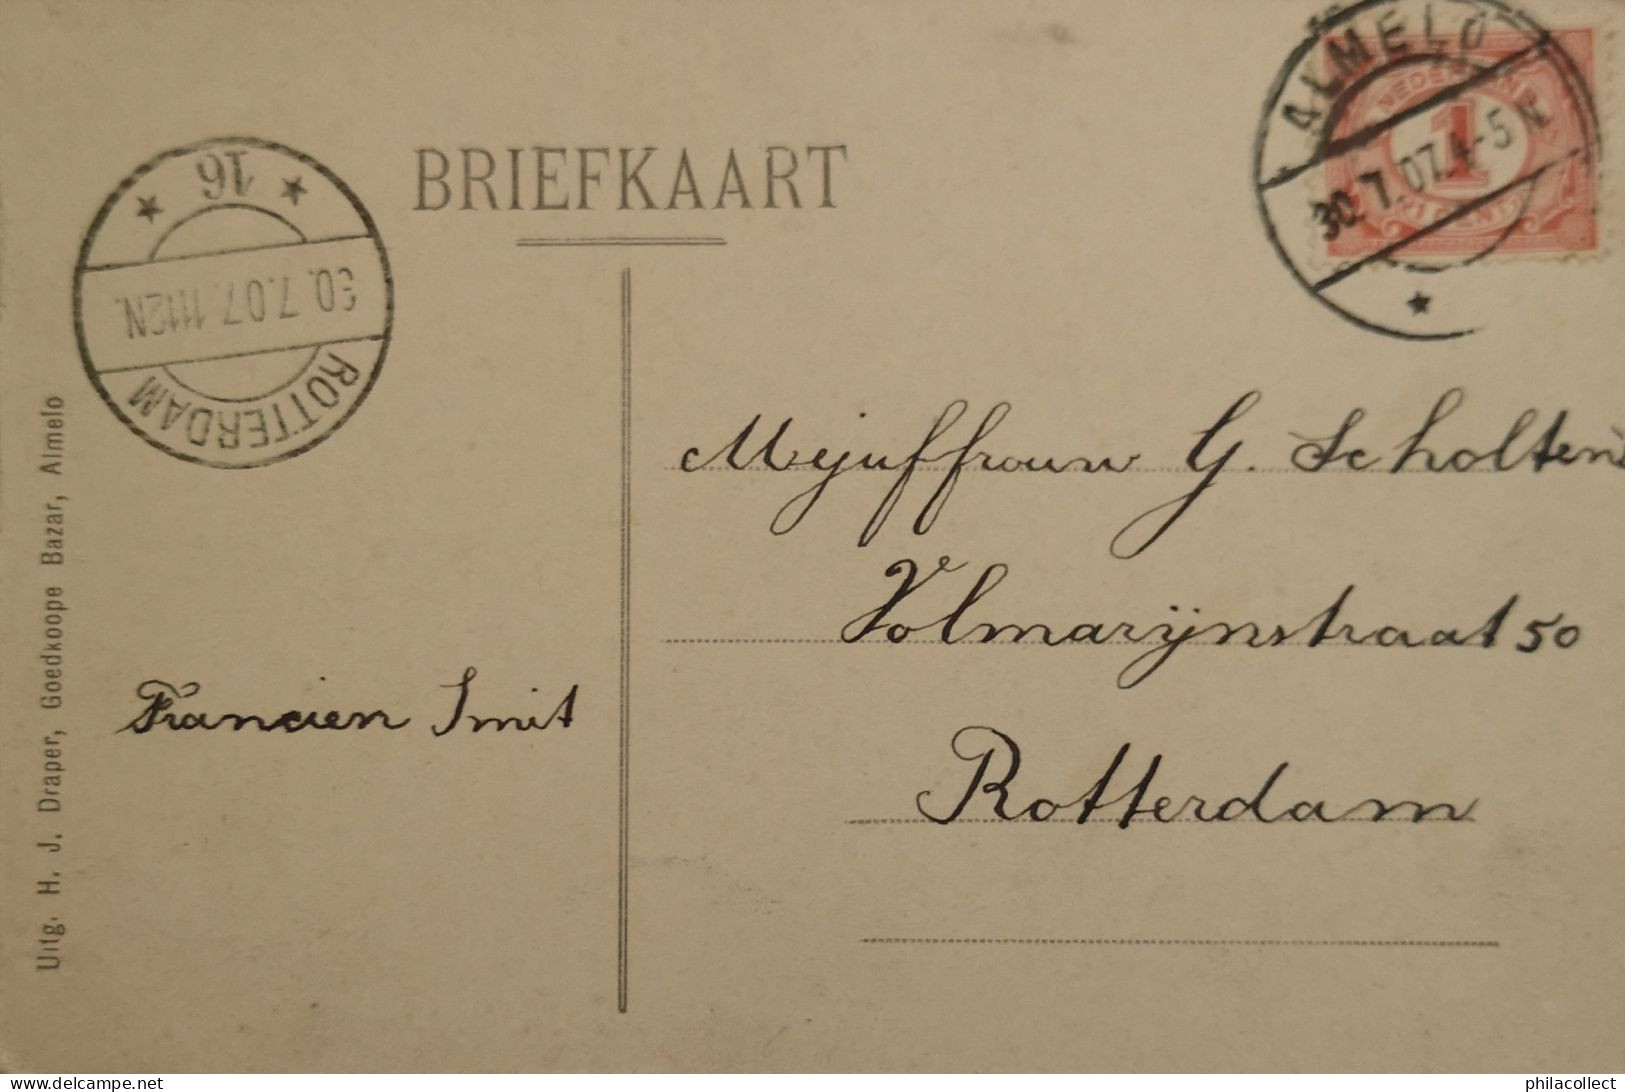 BRIEFKAART
ALMELO
30.7.07.4-5N
NEDERLAND
1
1 CENT
16
30.7.07.1112N.
ROTTERDAM
Mejuffrouw G. Scholten
Volmarijnstraat 50
Rotterdam
Francien Smit
Uitg. H. J. Draper, Goedkoope Bazar, Almelo
https://www.delcampe.net
philacollect